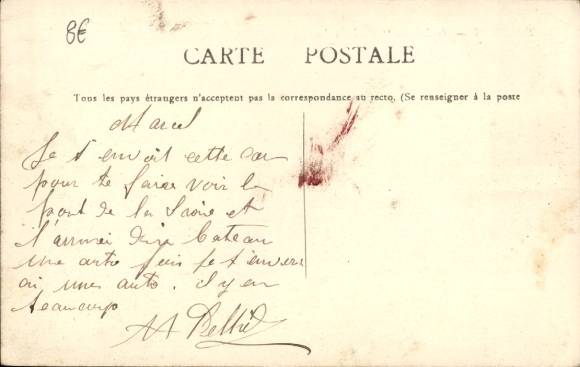 8€
CARTE POSTALE
Tous les pays étrangers n'acceptent pas la correspondance au recto. (Se renseigner à la poste
Marcel
Je t envoit cette car
pour te faire voir le
pont de la Saône et
l'arrivei d'un bateau
une autre fois je t'enverr
ai une auto. il y en
beaucoup